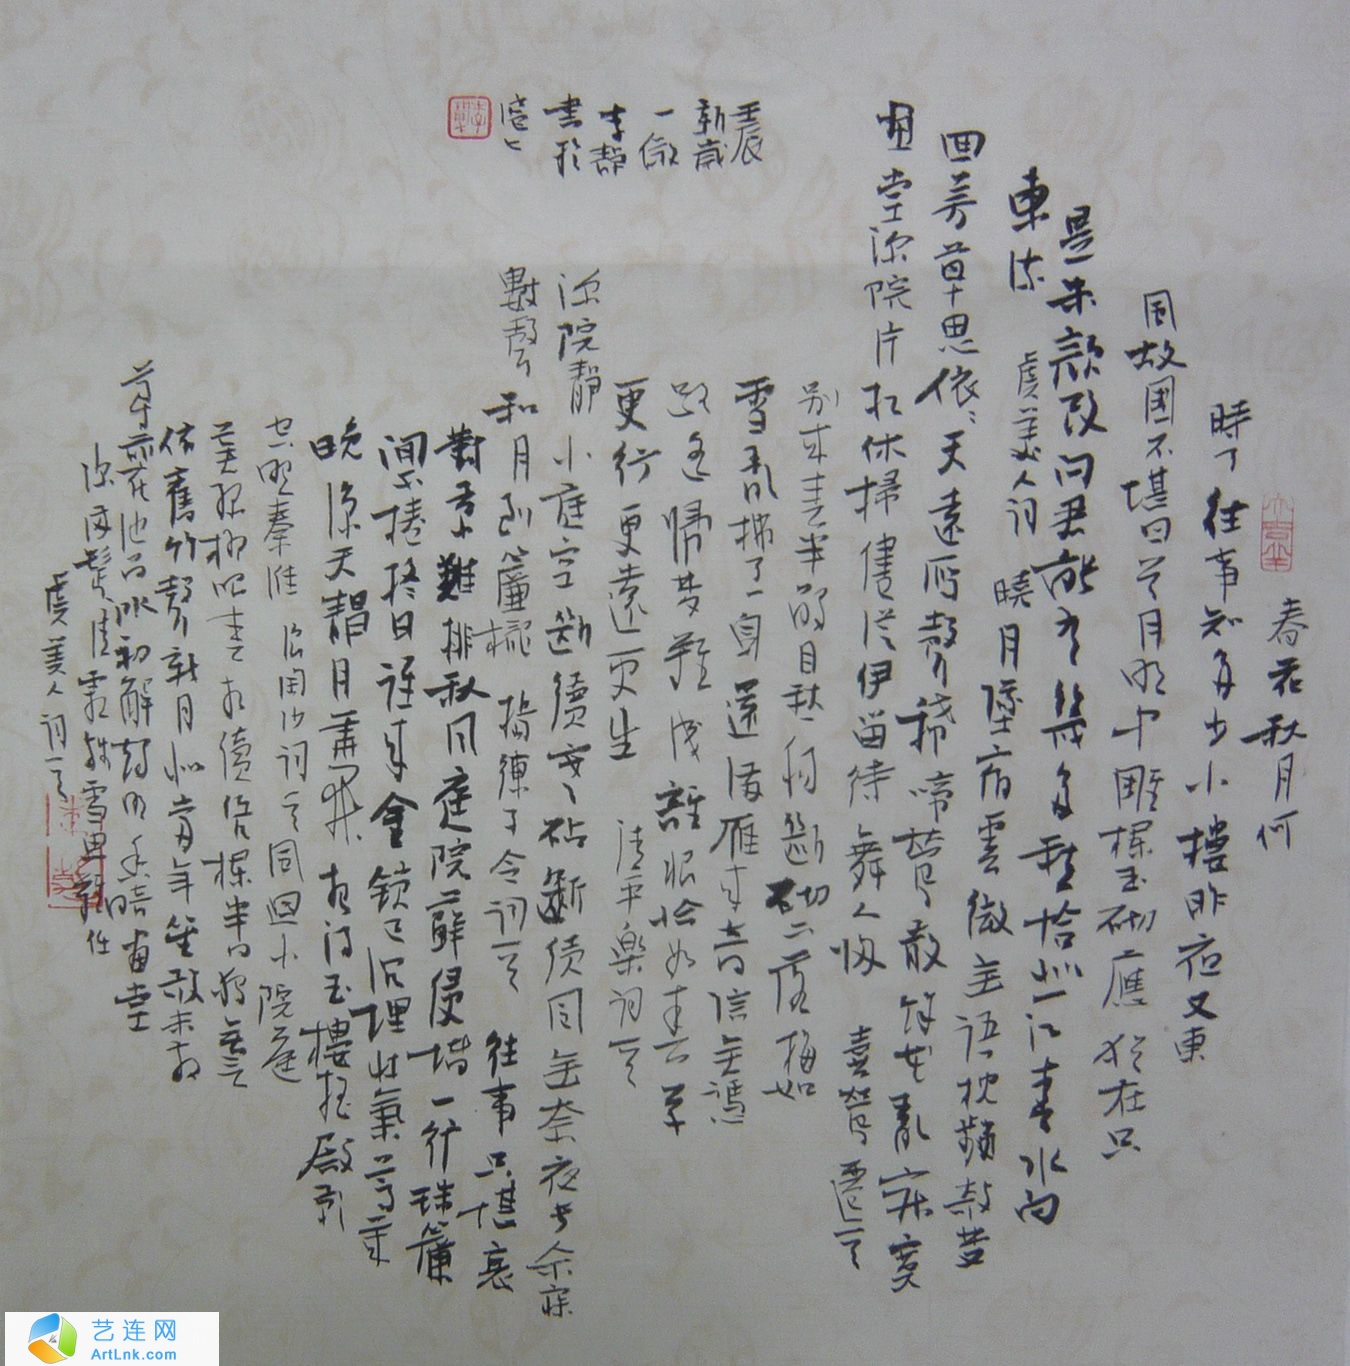 春花秋月何
時了往事知多少小樓昨夜又東
風故國不堪回首月明中雕欄玉砌應猶在只
是朱顏改問君能有幾多愁恰似一江春水向
東流 虞美人詞 曉月墜宿雲微無語枕頻欹夢
回芳草思依依天遠雁聲稀啼鶯散餘花亂寂寞
畫堂深院片紅休掃儘從伊留待舞人歸 喜鶯遷一首
別來春半觸目愁腸斷砌下落梅如
雪亂拂了一身還滿雁來音信無憑
路遙歸夢難成離恨恰如春草
更行更遠還生 清平樂詞一首
深院靜小庭空斷續寒砧斷續風無奈夜長人不寐
數聲和月到簾櫳 搗練子令詞一首 往事只堪哀
對景難排秋風庭院蘚侵階一行珠簾
閒不捲終日誰來金鎖已沉埋壯氣蒿萊
晚涼天靜月華開想得玉樓瑤殿影
空照秦淮 浪淘沙詞一首 風回小院庭
蕪綠柳眼春相續倚欄半日獨無言
依舊竹聲新月似當年笙歌未散
尊罍在池面冰初解燭明香暗畫堂
深滿鬢清霜殘雪思難任
虞美人詞一首
壬辰
新歲
一儆
李靜
書於
艺连网
ArtLnk.com